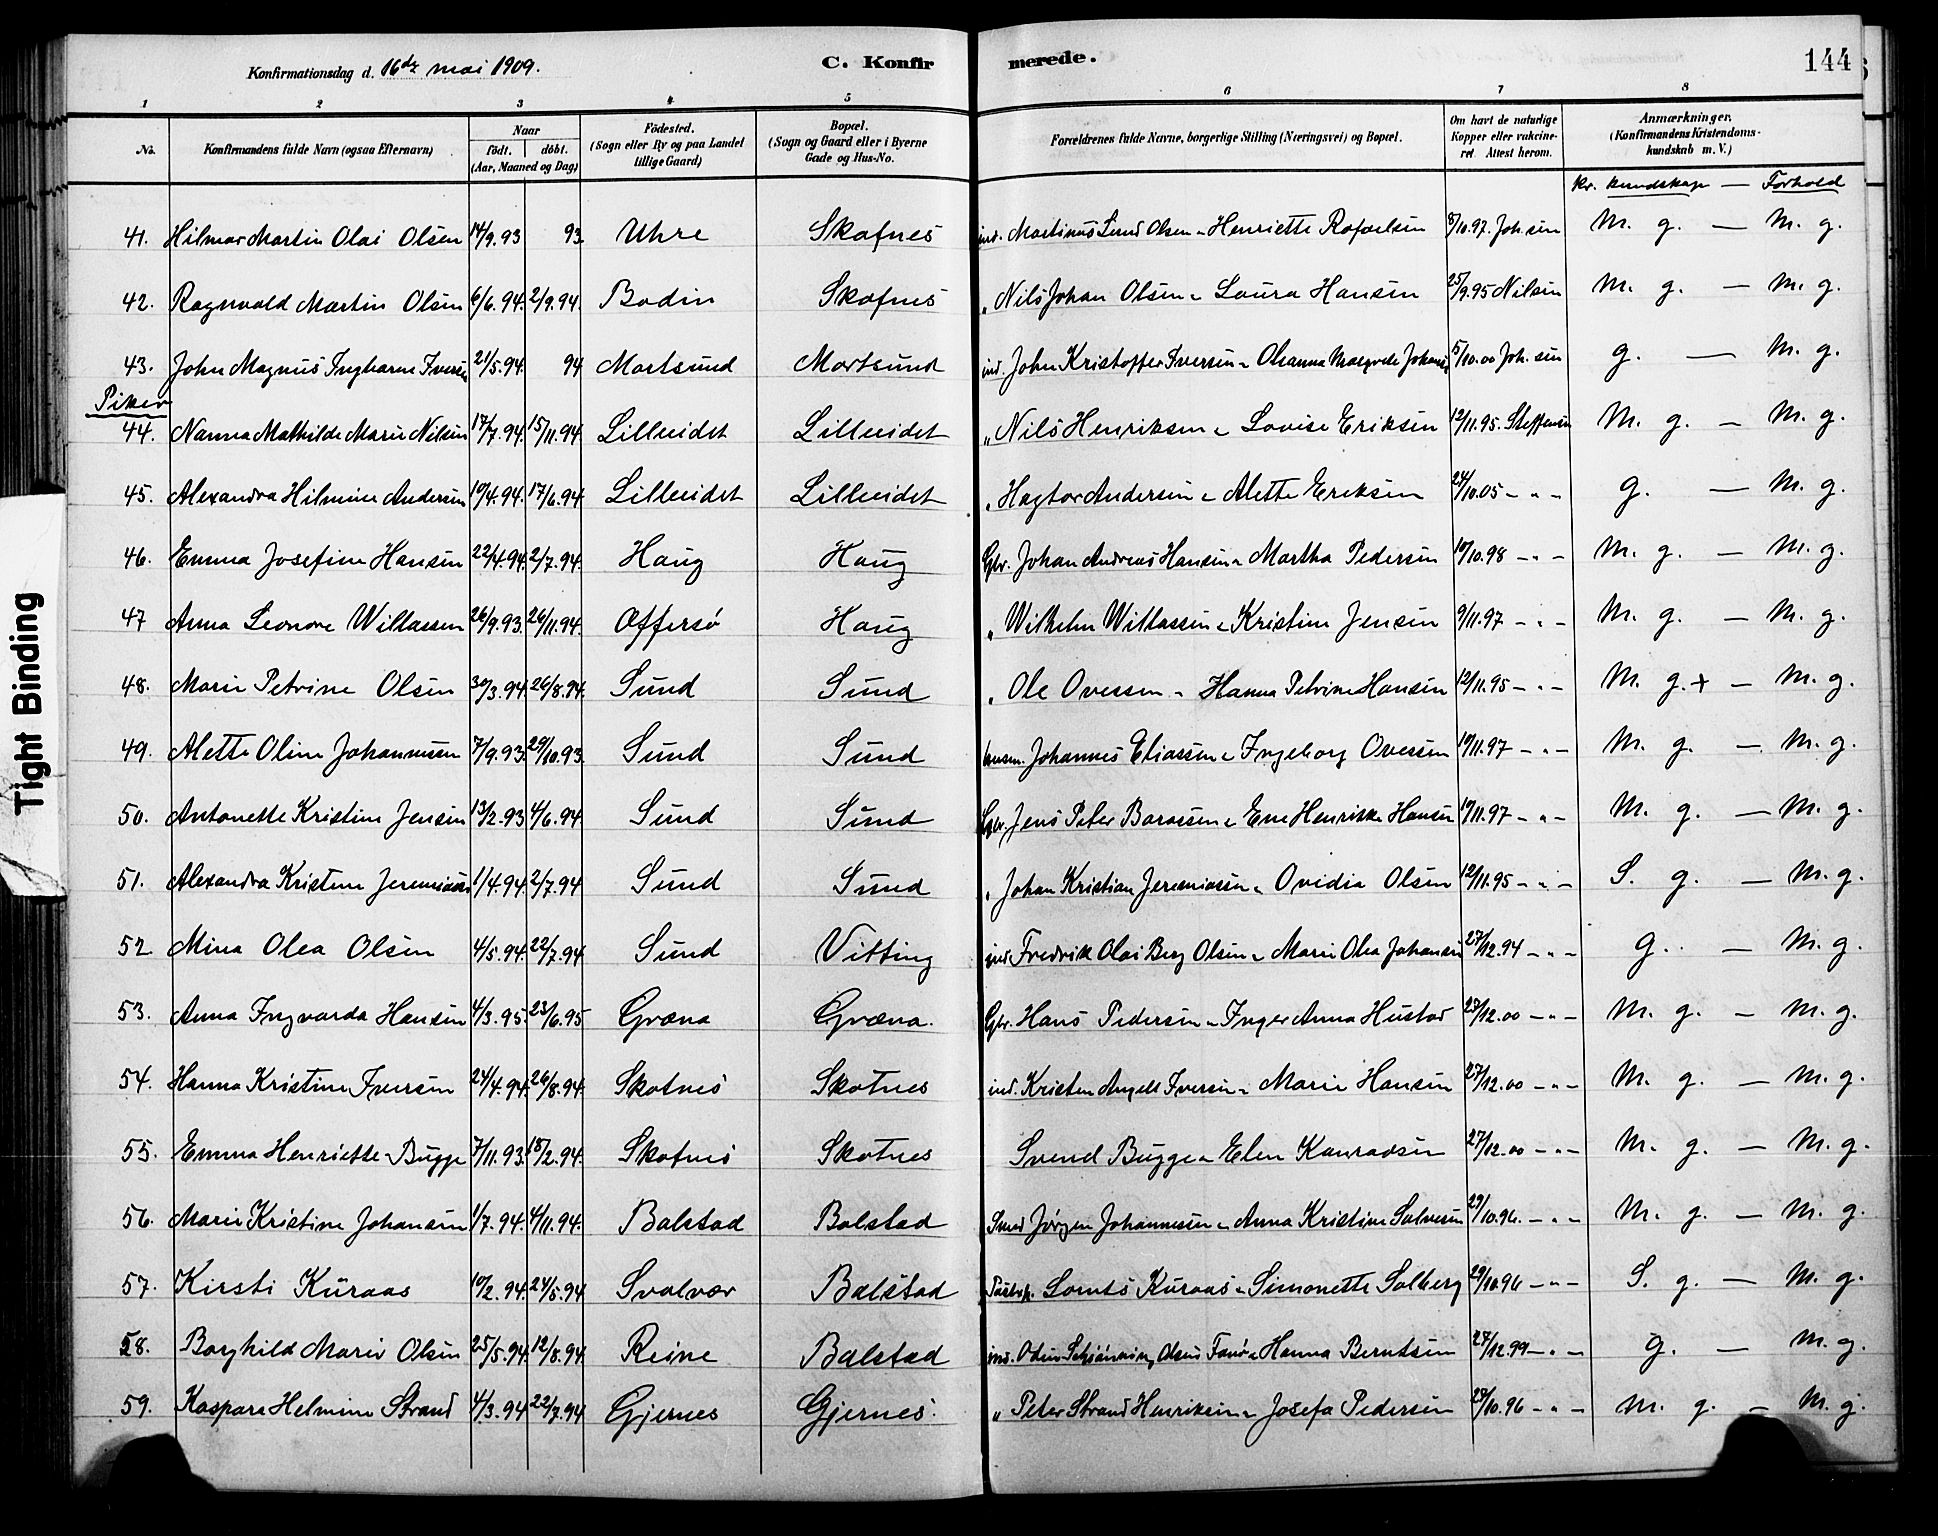 Konfirmationsdag d. 16de mai 1909. C. Konfir merede. 144
1 2 3 4 5 6 7 8
No. Konfirmandens fulde Navn (ogsaa Efternavn) Naar födt. döbt. (Aar, Maaned og Dag) Födested. (Sogn eller By og paa Landet tillige Gaard) Bopæl. (Sogn og Gaard eller i Byerne Gade og Hus-No. Forældrenes fulde Navne, borgerlige Stilling (Næringsvei) og Bopæl. Om havt de naturlige Kopper eller vakcineret. Attest herom. Anmærkninger. (Konfirmandens Kristendomskundskab m. V.)
kr. kundskap — Forhold
41. Hilmar Martin Olai Olsen 14/9.93 93 Uhre Skafnes ind. Martinus Lund Olsen " Henriette Rafaelsen 8/10.97. Joh.sen M. g. — M. g.
42. Ragnvald Martin Olsen 6/6.94. 2/9.94. Bodin Skafnes " Nils Johan Olsen " Laura Hansen 25/9.95 Nilsen M. g. — M. g.
43. John Magnus Ingharm Iversen 21/5.94. 94 Mortsund Mortsund ind. John Kristoffer Iversen " Ohanna Margrete Johans. 5/10.00 Joh. sen g. — M. g.
Piker
44. Nanna Mathilde Marie Nilsen 17/7.94. 15/11.94 Lilleeidet Lilleeidet " Nils Henriksen " Lovise Eriksen 12/11.95. Steffensen M. g. — M. g.
45. Alexandra Hilmine Andersen 10/4.94. 17/6.94 Lilleeidet Lilleeidet " Hagtor Andersen " Alette Eriksen 24/10.05 — " — g. — M. g.
46. Emma Josefine Hansen 22/4.94. 2/7.94. Haug Haug Gbr. Johan Andreas Hansen " Martha Pedersen 10/10.98 — " — M. g. — M. g.
47 Anna Leonore Willassen 26/9.93. 26/11.94. Offersö Haug " Wilhelm Willassen " Kristine Jensen 9/11.97 — " — M. g. — M. g.
48. Marie Petrine Olsen 30/3.94. 26/8.94. Sund Sund " Ole Ovessen " Hanna Petrine Hansen 12/11.95 — " — M. g. + — M. g.
49. Alette Oline Johannessen 7/9.93. 29/10.93. Sund Sund husm. Johannes Eliassen " Ingeborg Ovessen 10/11.97 — " — M. g. — M. g.
50. Antonette Kristine Jensen 13/2.93 4/6.94. Sund Sund Gbr. Jens Peter Baroesen " Ene Henrikke Hansen 10/11.97 — " — M. g. — M. g.
51. Alexandra Kristine Jeremiassen 1/4.94. 2/7.94 Sund Sund " Johan Kristian Jeremiassen " Ovidia Olsen 12/11.95 — " — S. g. — M. g.
52 Mina Olea Olsen 4/5.94. 22/7.94 Sund Vitting ind. Fredrik Olai Berg Olsen " Marie Olea Johansen 27/12.94 — " — g. — M. g.
53. Anna Ingvarda Hansen 4/3.95. 23/6.95 Græna Græna. Gbr. Hans Pedersen " Inger Anna Hustad 27/12.00 — " — M. g. — M. g.
54. Hanna Kristine Iversen 24/4.94. 26/8.94. Skotnes Skotnes ind. Kristen Angell Iversen " Marie Hansen 27/12.00 — " — M. g. — M. g.
55. Emma Henriette Bugge 7/11.93. 18/2.94. Skotnes Skotnes Svend Bugge " Elen Konradsen 27/12.00 — " — M. g. — M. g.
56. Marie Kristine Johansen 1/7.94. 4/11.94. Balstad Balstad Smed Jørgen Johannesen " Anna Kristine Salvesen 29/10.96. — " — M. g. — M. g.
57. Kirsti Kuraas 10/2.94. 24/5.94 Svolvær Balstad Lornts Kuraas " Simonette Solberg 29/10.96 — " — S. g. — M. g.
58. Borghild Marie Olsen 25/5.94. 12/8.94. Reine Balstad ind. Odin Olsen " Hanna Berntsen 27/12.99 — " — g. — M. g.
59. Kaspara Helmine Strand 4/3.94 22/7.94 Gjernes Gjernes. " Peter Strand Henriksen " Josefa Pedersen 29/10.96 — " — M. g. — M. g.
Tight Binding